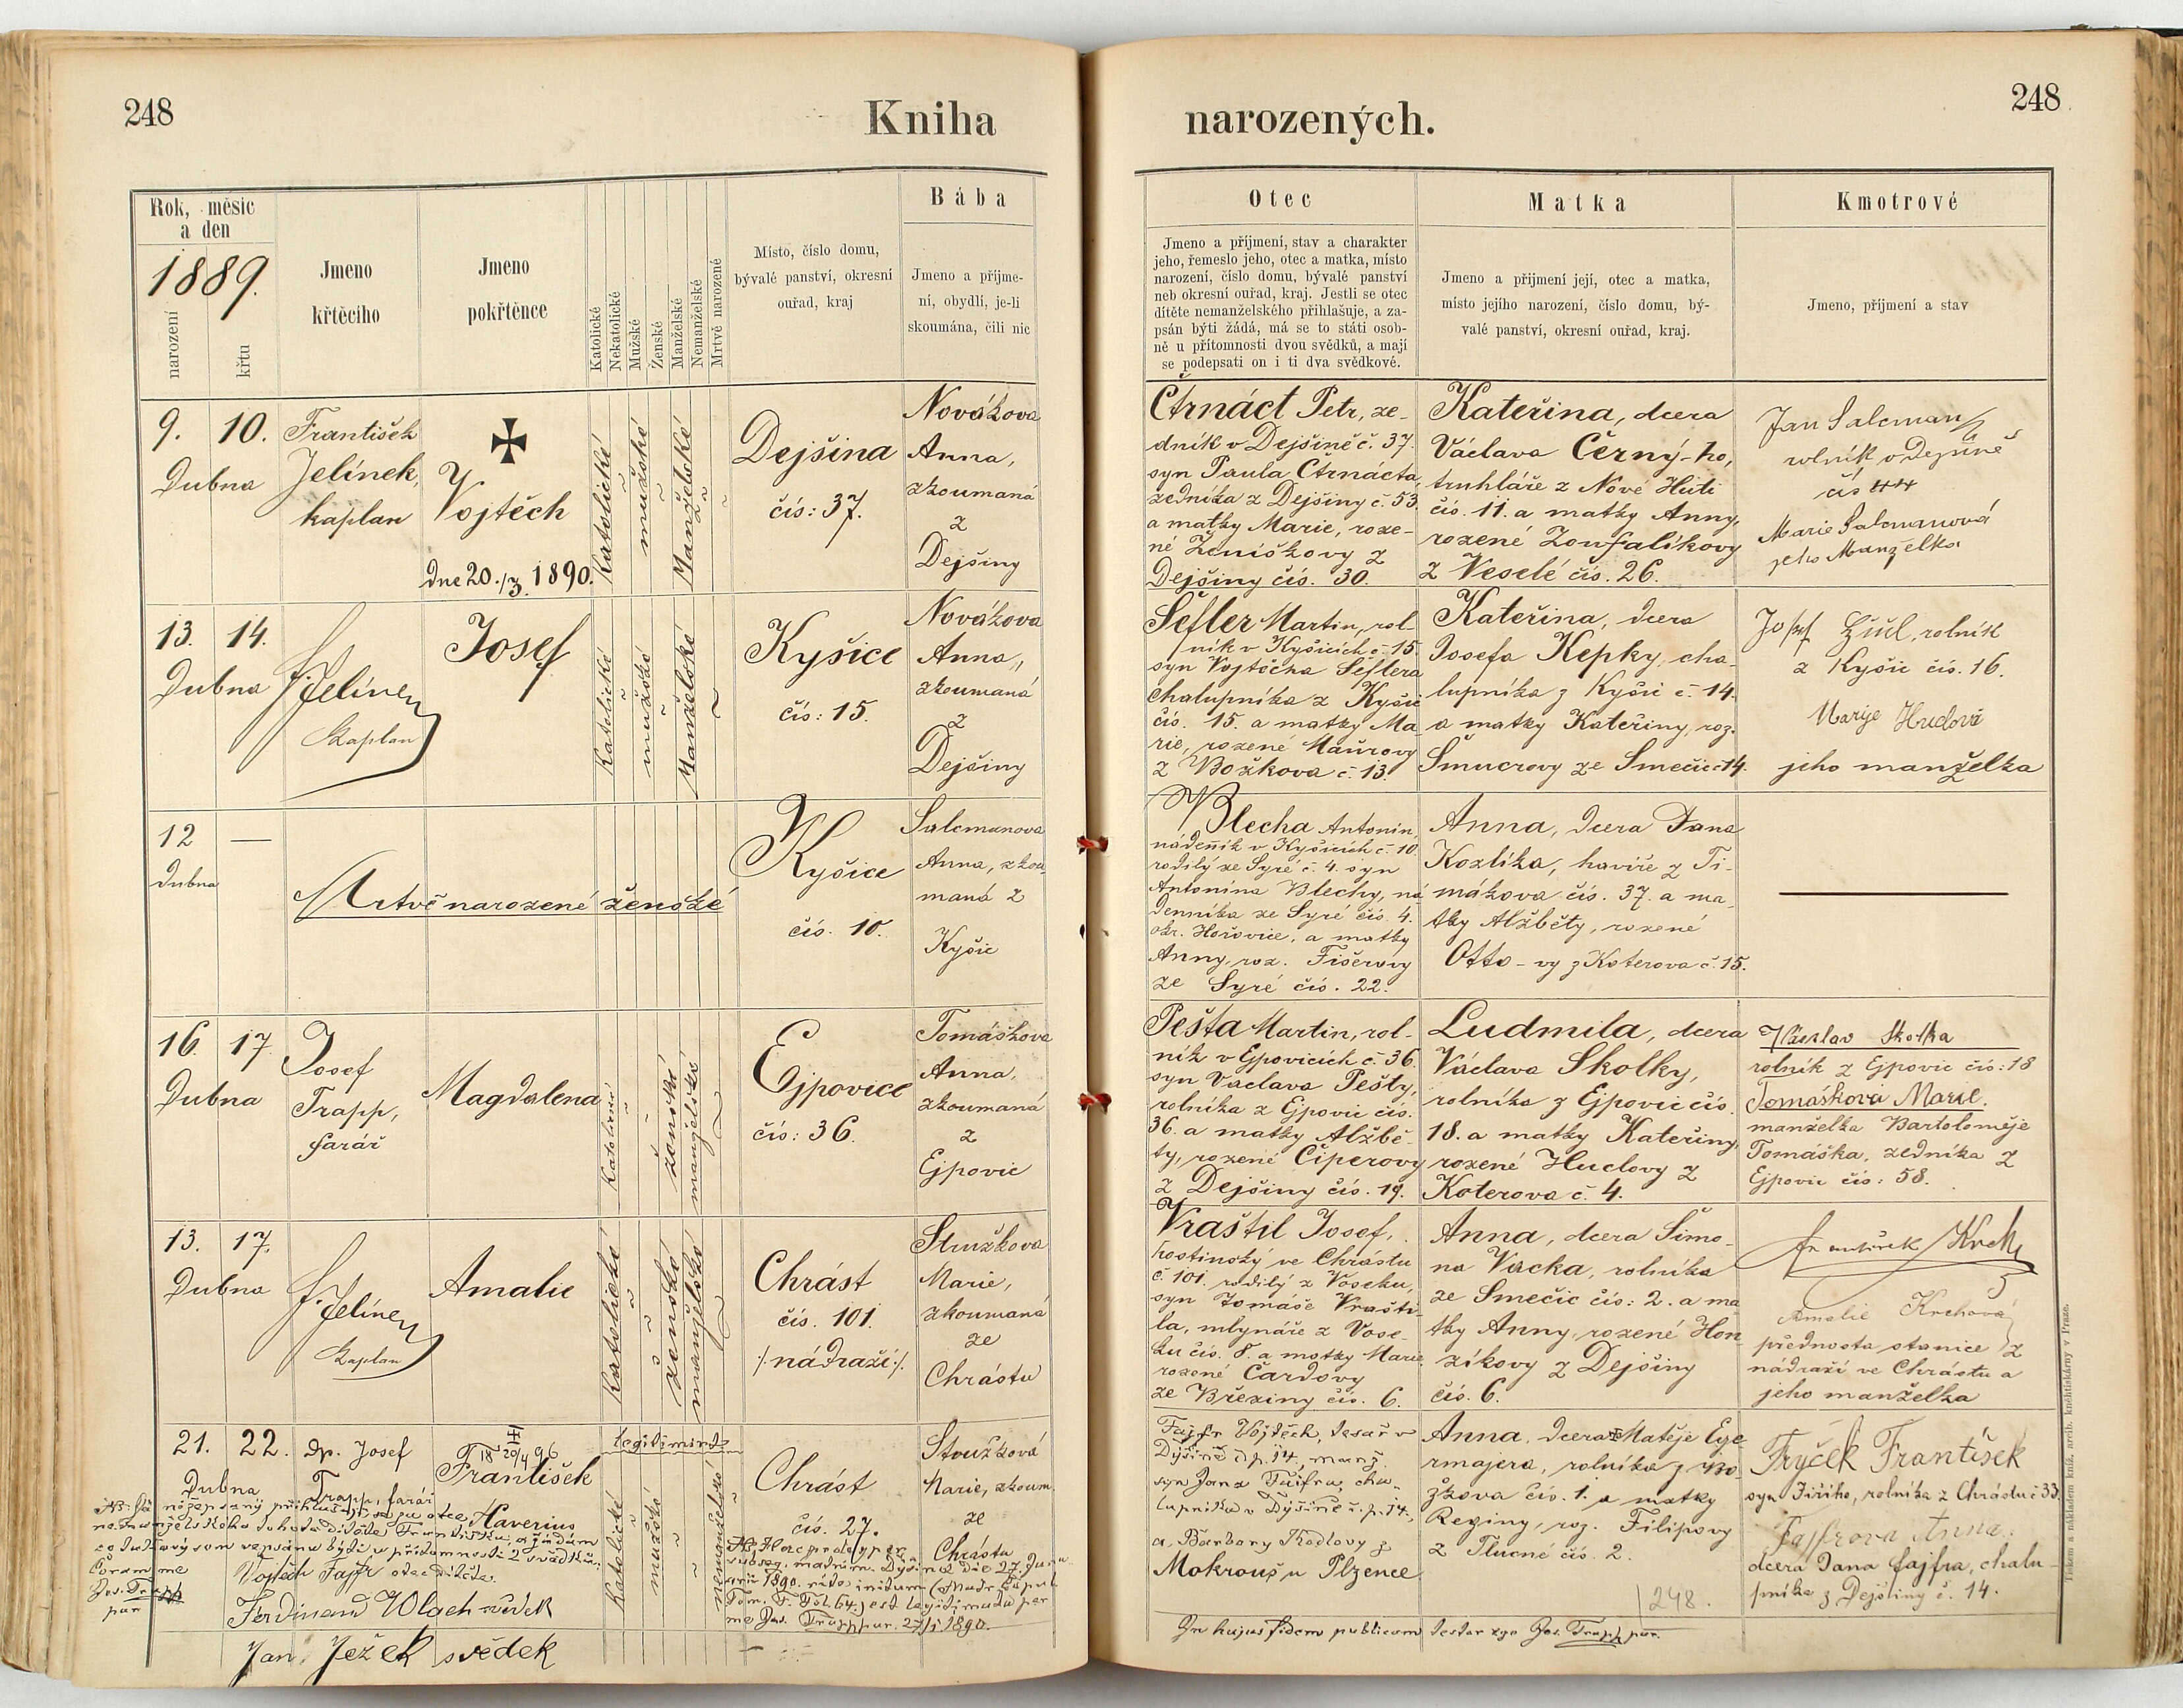 248
Kniha
narozených.
248
Rok, měsíc
a den
1889.
narození
křtu
Jmeno
křtěcího
Jmeno
pokřtěnce
Katolické
Nekatolické
Mužské
Ženské
Manželské
Nemanželské
Mrtvě narozené
Místo, číslo domu,
bývalé panství, okresní
ouřad, kraj
Bába
Jmeno a příjme-
ní, obydlí, je-li
skoumána, čili nic
Otec
Jmeno a příjmení, stav a charakter
jeho, řemeslo jeho, otec a matka, místo
narození, číslo domu, bývalé panství
neb okresní ouřad, kraj. Jestli se otec
dítěte nemanželského přihlašuje, a za-
psán býti žádá, má se to státi osob-
ně u přítomnosti dvou svědků, a mají
se podepsati on i ti dva svědkové.
Matka
Jmeno a příjmení její, otec a matka,
místo jejího narození, číslo domu, bý-
valé panství, okresní ouřad, kraj.
Kmotrové
Jmeno, příjmení a stav
9. 10.
Dubna
František
Jelínek,
kaplan
Vojtěch
dne 20./3. 1890.
Katolické
mužské
Manželské
Dejšina
čís: 37.
Novákova
Anna,
zkoumaná
z
Dejšiny
Čtrnáct Petr, ze-
dník v Dejšině č. 37.
syn Paula Čtrnácta,
zedníka z Dejšiny č. 53.
a matky Marie, roze-
né Ženíškovy z
Dejšiny čís. 30.
Kateřina, dcera
Václava Černý-ho,
truhláře z Nové Huti
čís. 11. a matky Anny,
rozené Zoufalíkovy
z Veselé čís. 26.
Jan Salcman
rolník v Dejšině
čís 44
Marie Salcmanová
jeho Manželka
13. 14.
Dubna
F. Jelínek
kaplan
Josef
Katolické
mužské
Manželské
Kyšice
čís: 15.
Novákova
Anna,
zkoumaná
z
Dejšiny
Šefler Martin, rol-
ník v Kyšicích č. 15.
syn Vojtěcha Šeflera
chalupníka z Kyšic
čís. 15. a matky Ma-
rie, rozené Maurovy
z Božkova č. 13.
Kateřina, dcera
Josefa Kepky, cha-
lupníka z Kyšic č. 14.
a matky Kateřiny, roz.
Šmucrovy ze Smečic č 14.
Josef
rolník
z Kyšic čís. 16.
Marije Hudová
jeho manželka
12 —
Dubna
Mrtvě narozené ženské
Kyšice
čís. 10.
Salcmanova
Anna, zkou-
maná z
Kyšic
Blecha Antonín,
nádenník v Kyšicích č. 10
rodilý ze Syré č. 4. syn
Antonína Blechy, ná-
denníka ze Syré čís. 4.
okr. Hořovice, a matky
Anny, roz. Fišerovy
ze Syré čís. 22.
Anna, dcera Jana
Kozlíka, havíře z Ti-
mákova čís. 37. a ma-
tky Alžběty, rozené
Otto-vy z Koterova č. 15.
16. 17.
Dubna
Josef
Trapp,
farář
Magdalena
Katolické
ženské
manželské
Ejpovice
čís: 36.
Tomáškova
Anna,
zkoumaná
z
Ejpovic
Pešta Martin, rol-
ník v Ejpovicích č. 36.
syn Václava Pešty,
rolníka z Ejpovic čís.
36. a matky Alžbě-
ty, rozené Čiperovy
z Dejšiny čís. 19.
Ludmila, dcera
Václava Skolky,
rolníka z Ejpovic čís.
18. a matky Kateřiny,
rozené Huclovy z
Koterova č. 4.
Skolka
rolník z Ejpovic čís: 18
Tomáškova Marie.
manželka Bartoloměje
Tomáška, zedníka z
Ejpovic čís: 58.
13. 17.
Dubna
F. Jelínek
kaplan
Amalie
Katolické
ženské
manželské
Chrást
čís. 101.
/:nádraží:/.
Stružkova
Marie,
zkoumaná
ze
Chrástu
Vraštil Josef,
hostinský ve Chrástu
č. 101. rodilý z Voseku,
syn Tomáše Vrašti-
la, mlynáře z Vose-
ku čís. 8. a matky Marie
rozené Čardovy
ze Březiny čís. 6.
Anna, dcera Šimo-
na Vacka, rolníka
ze Smečic čís: 2. a ma
tky Anny, rozené Hon
zíkovy z Dejšiny
čís. 6.
František Krch
Amalie Krchová
přednosta stanice z
nádraží ve Chrástu a
jeho manželka
21. 22.
Dubna
Dp. Josef
Trapp, farář
18 20/4 96
František
Xaverius
legitimirt
Katolické
mužské
nemanželské
Chrást
čís. 27.
Stružková
Marie, zkoum.
ze
Chrástu
Vojtěch Fajfr otec dítěte.
Coram me
Jos. Trapp
par
Ferdinand Wlach svědek
Jan Ježek svědek
Haec proles per
subseq. matrim. Dýšinae die 27. Janu-
arii 1890. rite initum
Tom. F. Fol. 64.) est legitimata per
me Jos. Trapp par. 27/1 1890.
Fajfr Vojtěch, tesař v
Dýšině čp. 14, manž.
syn Jana Fajfra, cha-
lupníka v Dýšině č. p. 14,
a Barbary Kodlovy z
Mokrouš u Plzence
Anna, dcera Matěje Ege
rmajera, rolníka z Bo-
žkova čís. 1. a matky
Reginy, roz. Filipovy
z Tlucné čís. 2.
248.
Fryček František
syn Jiřího, rolníka z Chrástu č 33.
Fajfrova Anna.
dcera Jana Fajfra, chalu-
pníka z Dejšiny č. 14.
In hujus fidem publicam testor ego Jos. Trapp par.
Tiskem a nákladem kníž. arcib. knihtiskárny v Praze.